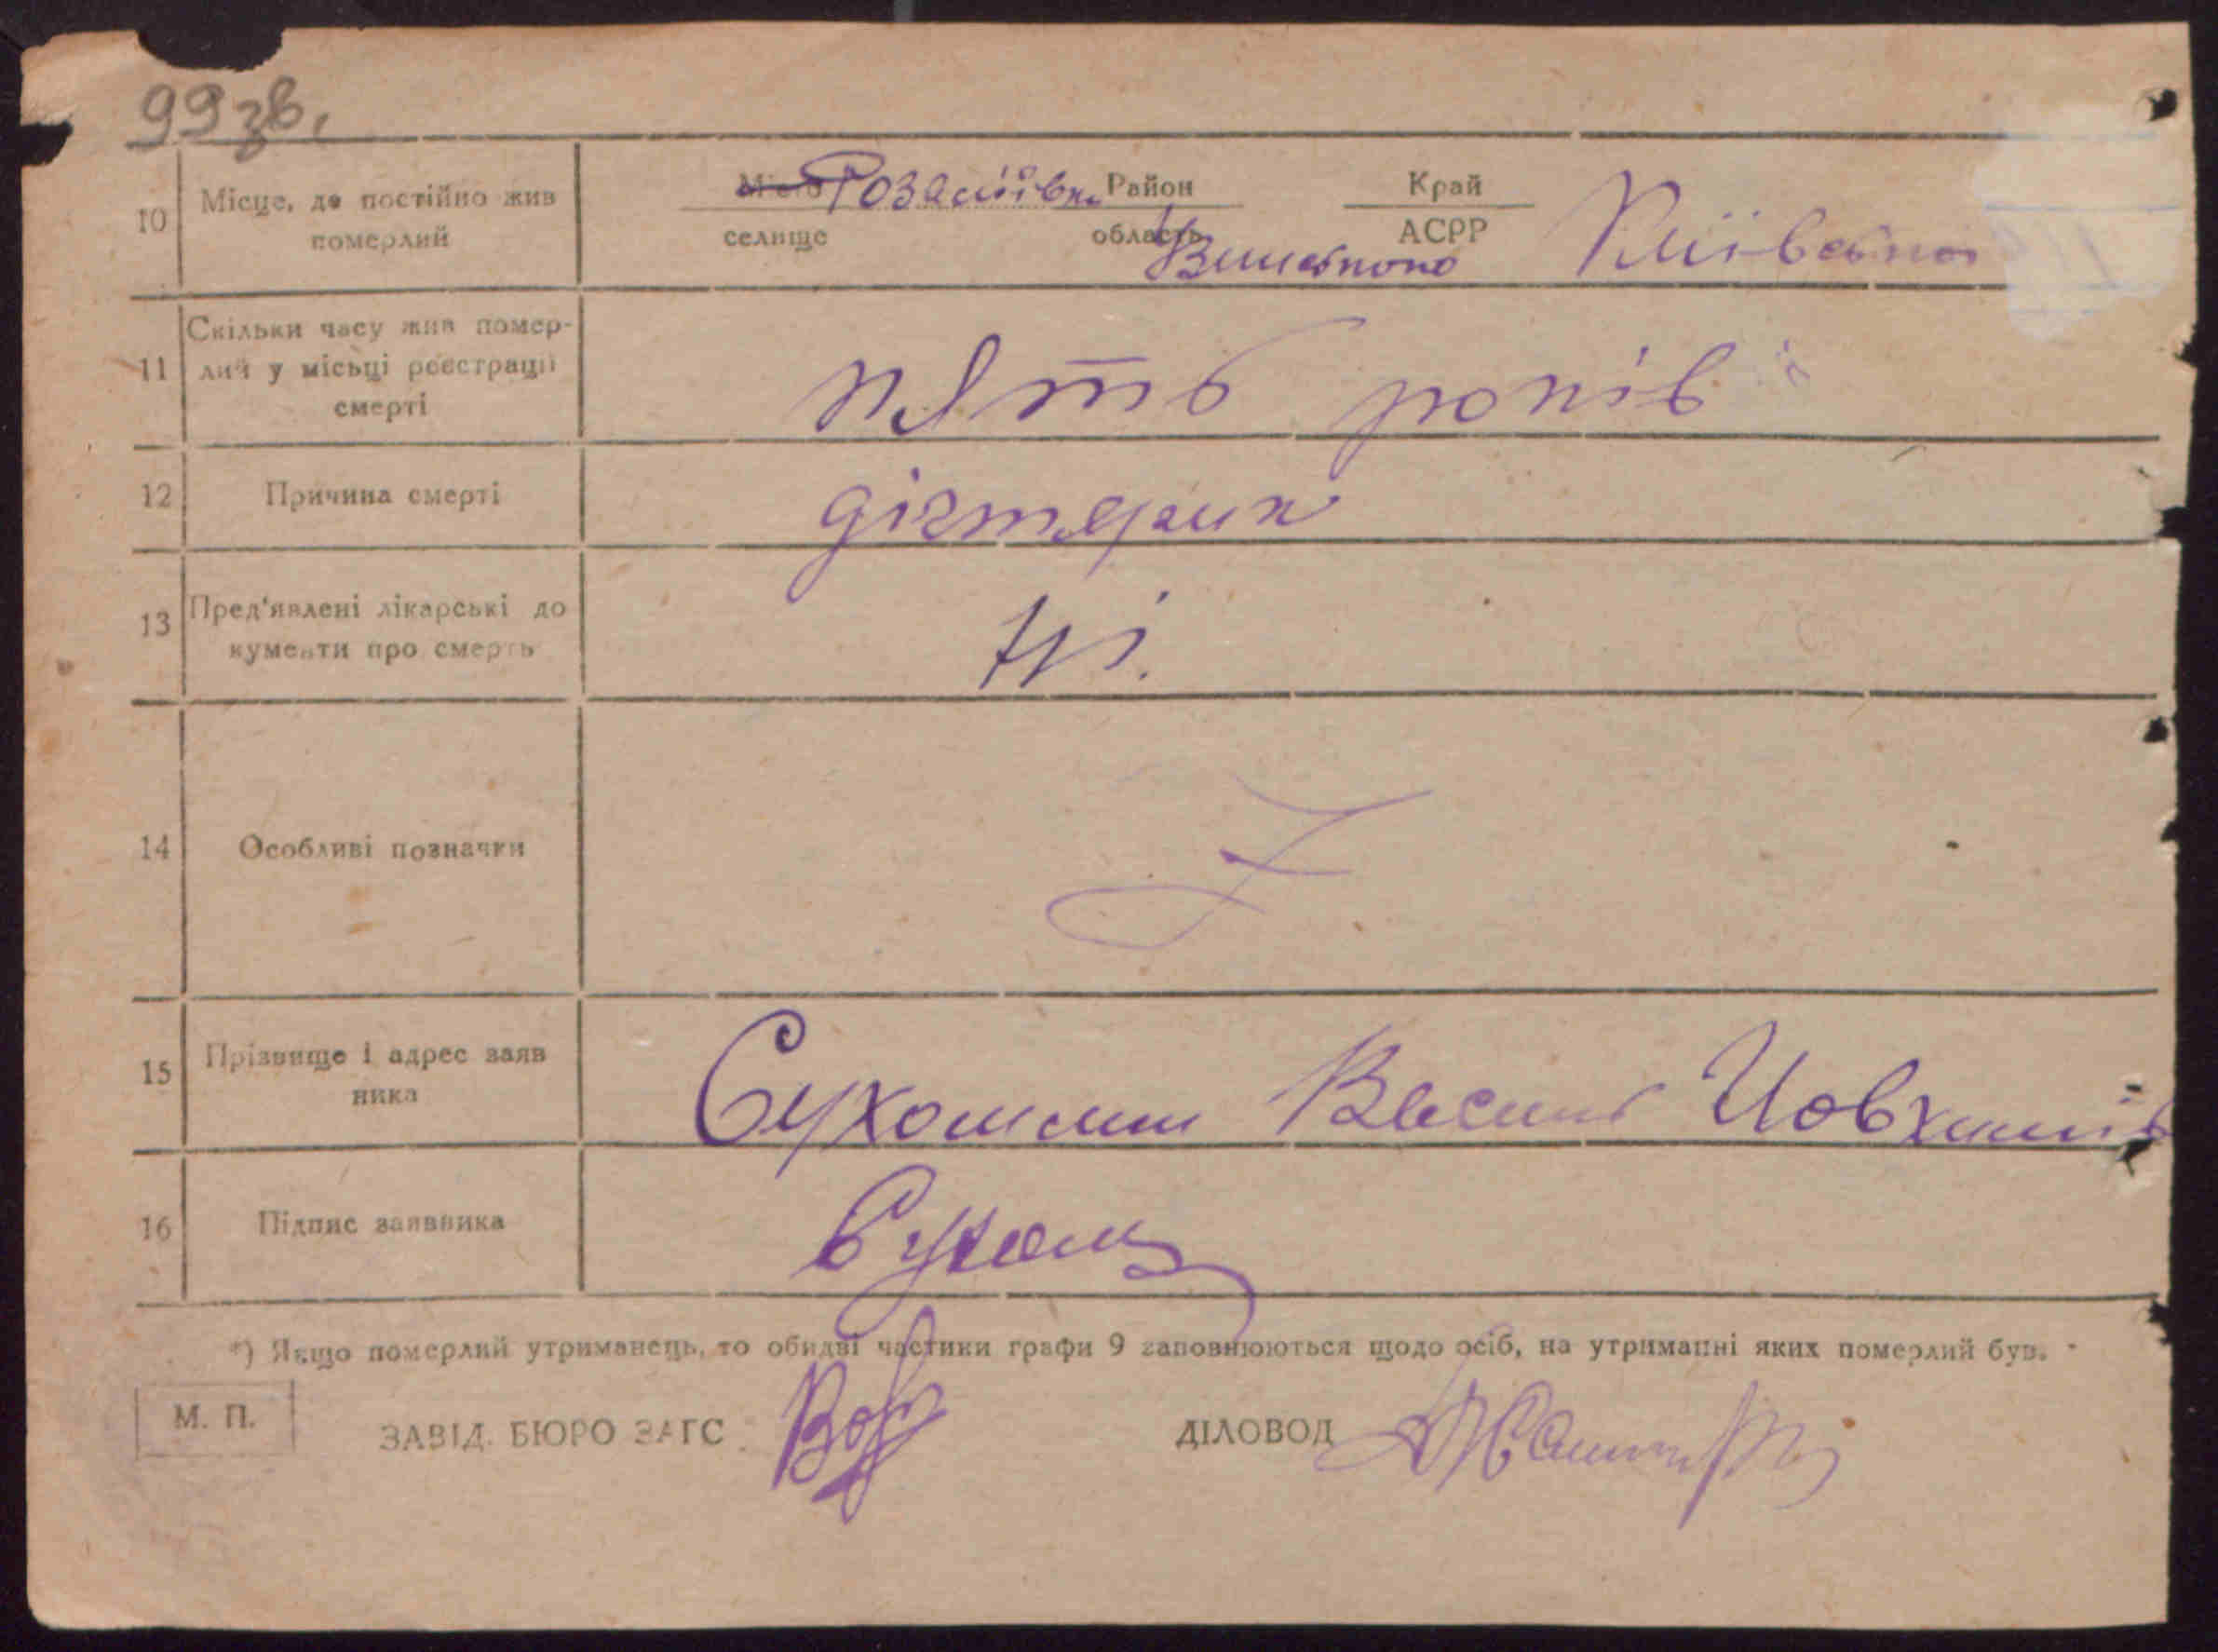 99 зв.
10 Місце, де постійно жив померлий
Місто Розаліївка Район Край Київської
селище область АСРР
11 Скільки часу жив помер-
лий у місьці реєстрації
смерті
пять років
12 Причина смерті
13 Пред'явлені лікарські до
кументи про смерть
Ні.
14 Особливі позначки
15 Прізвище і адрес заяв
ника
Сухомлин Василь
16 Підпис заявника
*) Якщо померлий утриманець, то обидві частини графи 9 заповнюються щодо осіб, на утриманні яких померлий був.
М. П.
ЗАВІД. БЮРО ЗАГС
ДІЛОВОД